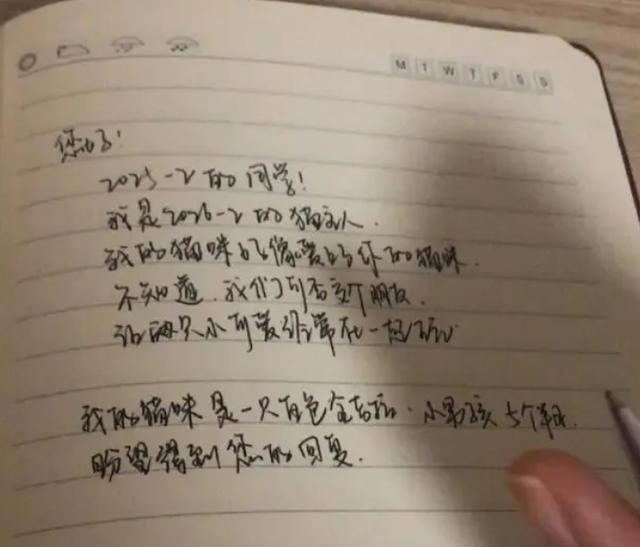 M T W T F S S
您好!
2025-2的同学!
我是2026-2的猫主人.
我的猫咪好像爱的你的猫咪.
不知道.我们可否交个朋友.
让两只小可爱经常在一起玩
我的猫咪是一只白色全吉拉.小男孩 5个半月.
盼望得到您的回复.